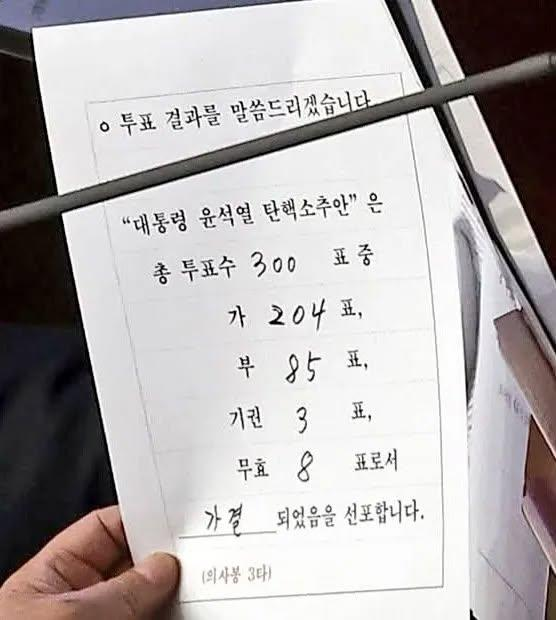 ㅇ 투표 결과를 말씀드리겠습니다
“대통령 윤석열 탄핵소추안”은
총 투표수 300 표 중
가 204 표,
부 85 표,
기권 3 표,
무효 8 표로서
가결 되었음을 선포합니다.
(의사봉 3타)